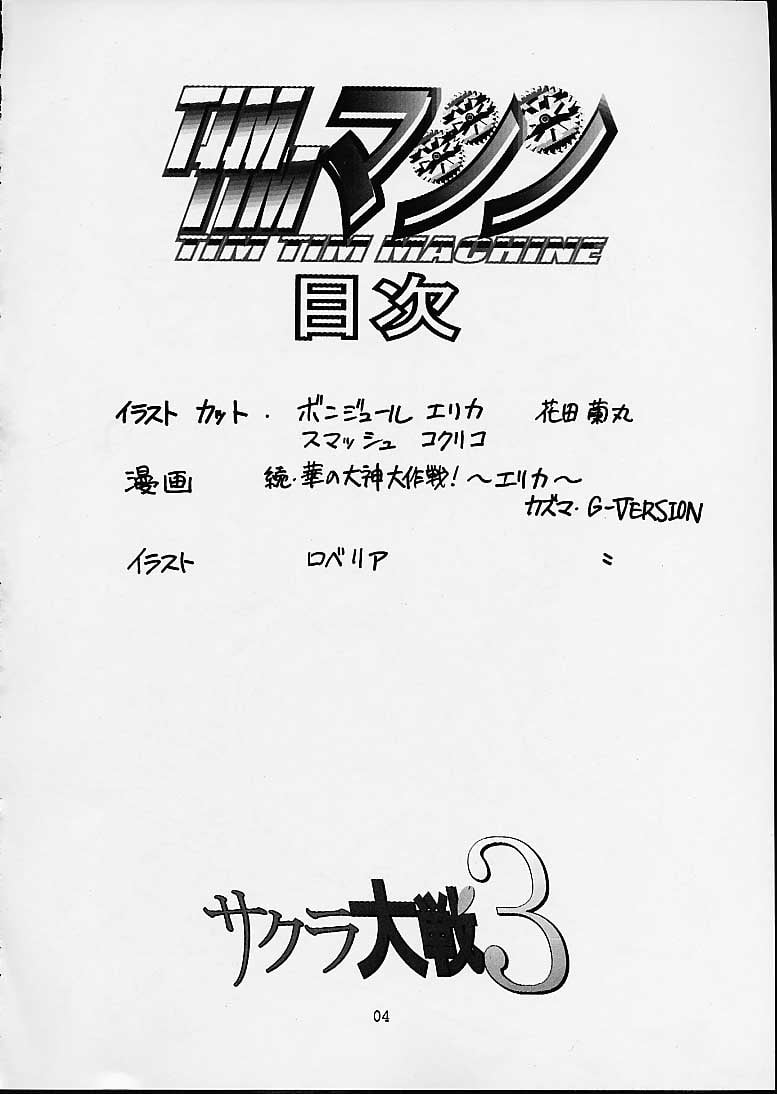 TIM-
TIMマシン
TIM TIM MACHINE
目次
イラスト カット・ ボンジュール エリカ 花田 蘭丸
スマッシュ コクリコ
漫画 続・華の大神大作戦!〜エリカ〜
カズマ・G-VERSION
イラスト ロベリア 〃
サクラ大戦3
04